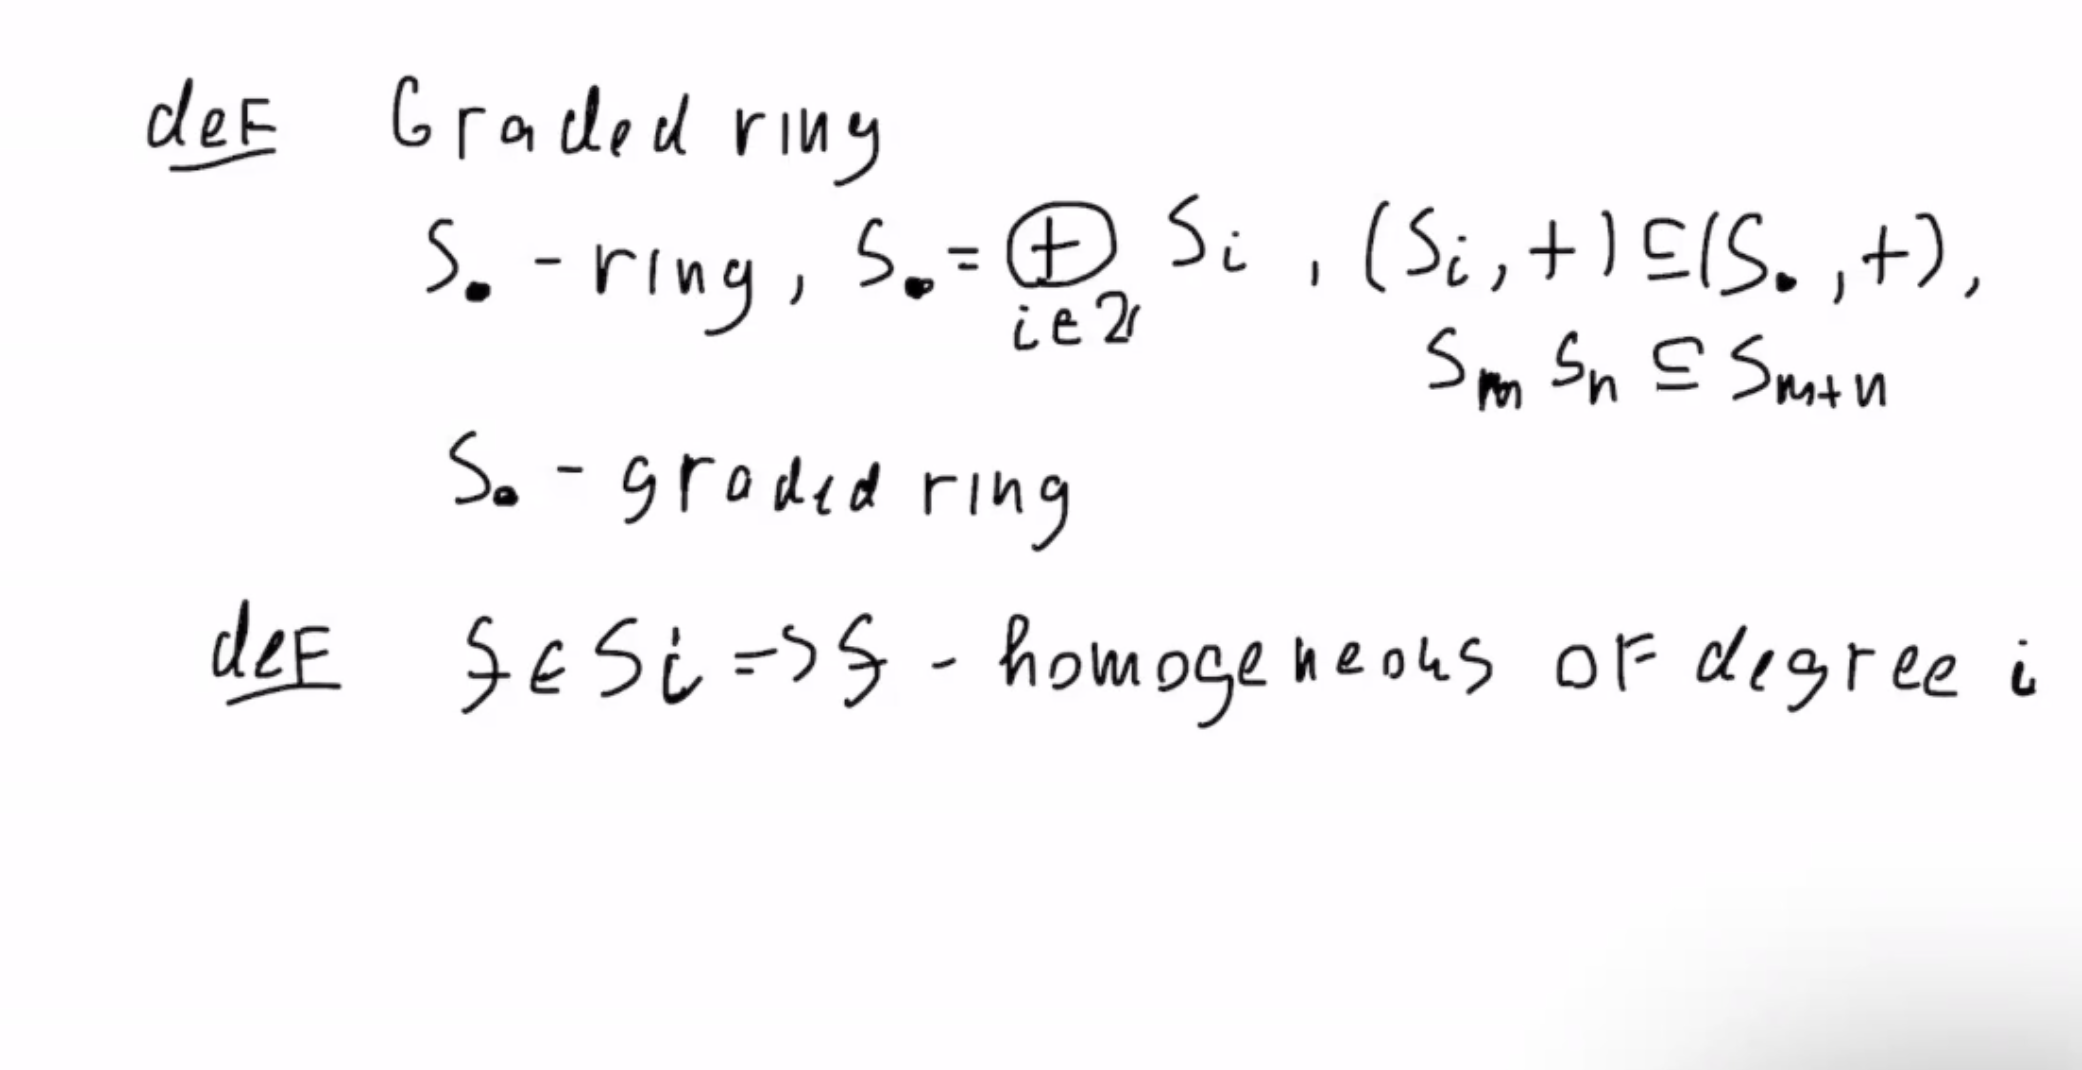 def Graded ring
S• - ring, S• = ⊕ Si, (Si, +) ⊆ (S•, +),
i∈ℤ
Sm Sn ⊆ Sm+n
S• - graded ring
def f ∈ Si => f - homogeneous of degree i